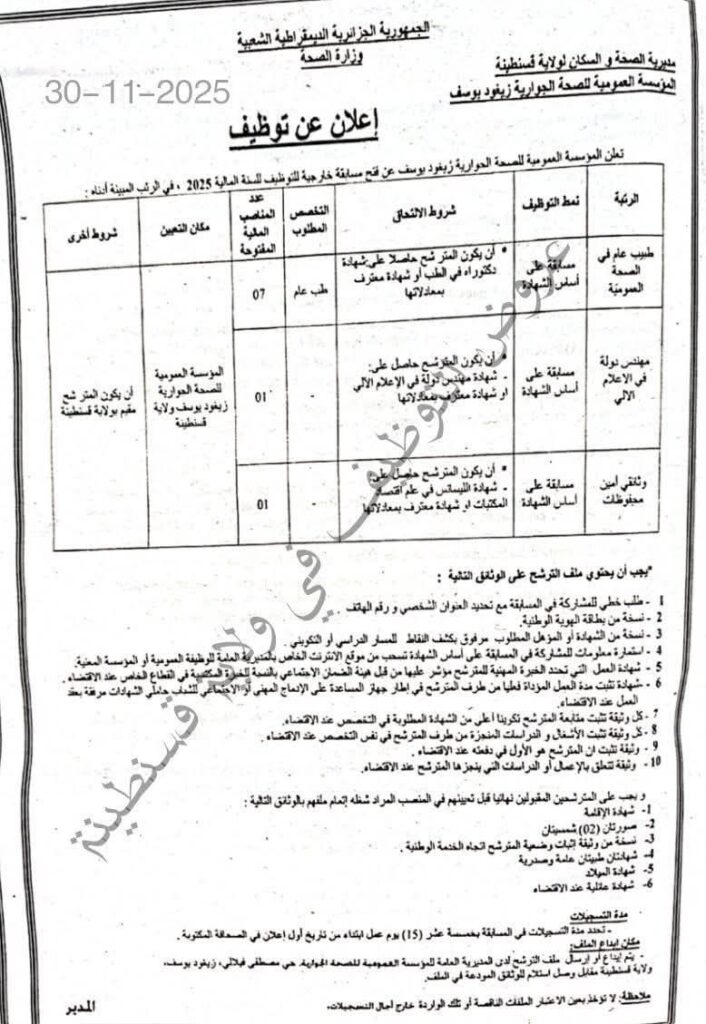 الجمهورية الجزائرية الديمقراطية الشعبية
وزارة الصحة
مديرية الصحة و السكان لولاية قسنطينة
المؤسسة العمومية للصحة الجوارية زيغود يوسف
30-11-2025
إعلان عن توظيف
تعلن المؤسسة العمومية للصحة الجوارية زيغود يوسف عن فتح مسابقة خارجية للتوظيف للسنة المالية 2025 ، في الرتب المبينة أدناه :
الرتبة
نمط التوظيف
شروط الالتحاق
التخصص المطلوب
عدد المناصب المالية المفتوحة
مكان التعيين
شروط أخرى
طبيب عام في الصحة العمومية
مسابقة على أساس الشهادة
• أن يكون المترشح حاصلا على شهادة
دكتوراه في الطب أو شهادة معترف
بمعادلاتها
طب عام
07
المؤسسة العمومية
للصحة الجوارية
زيغود يوسف ولاية
قسنطينة
أن يكون المترشح
مقيم بولاية قسنطينة
مهندس دولة في الإعلام الآلي
مسابقة على أساس الشهادة
• أن يكون المترشح حاصل على:
- شهادة مهندس دولة في الإعلام الآلي
او شهادة معترف بمعادلاتها
-
01
وثائقي أمين محفوظات
مسابقة على أساس الشهادة
• أن يكون المترشح حاصل على:
- شهادة الليسانس في علم اقتصاد
المكتبات او شهادة معترف بمعادلاتها
-
01
*يجب أن يحتوي ملف الترشح على الوثائق التالية :
1 - طلب خطي للمشاركة في المسابقة مع تحديد العنوان الشخصي و رقم الهاتف .
2 - نسخة من بطاقة الهوية الوطنية.
3 - نسخة من الشهادة أو المؤهل المطلوب مرفوق بكشف النقاط للمسار الدراسي أو التكويني
4 - استمارة معلومات للمشاركة في المسابقة على أساس الشهادة تسحب من موقع الانترنت الخاص بالمديرية العامة للوظيفة العمومية أو المؤسسة المعنية.
5 - شهادة العمل التي تحدد الخبرة المهنية للمترشح مؤشر عليها من قبل هيئة الضمان الاجتماعي بالنسبة للخبرة المكتسبة في القطاع الخاص عند الاقتضاء.
6 - شهادة تثبت مدة العمل المؤداة فعليا من طرف المترشح في إطار جهاز المساعدة على الإدماج المهني أو الاجتماعي للشباب حاملي الشهادات مرفقة بعقد
العمل عند الاقتضاء.
7 - كل وثيقة تثبت متابعة المترشح تكوينا أعلى من الشهادة المطلوبة في التخصص عند الاقتضاء.
8 - كل وثيقة تثبت الأشغال و الدراسات المنجزة من طرف المترشح في نفس التخصص عند الاقتضاء.
9 - وثيقة تثبت ان المترشح هو الأول في دفعته عند الاقتضاء.
10 - وثيقة تتعلق بالإعمال أو الدراسات التي ينجزها المترشح عند الاقتضاء.
و يجب على المترشحين المقبولين نهائيا قبل تعيينهم في المنصب المراد شغله إتمام ملفهم بالوثائق التالية :
1- شهادة الإقامة
2- صورتان (02) شمسيتان
3- نسخة من وثيقة إثبات وضعية المترشح اتجاه الخدمة الوطنية .
4- شهادتان طبيتان عامة وصدرية
5- شهادة الميلاد
6- شهادة عائلية عند الاقتضاء
مدة التسجيلات
- تحدد مدة التسجيلات في المسابقة بخمسة عشر (15) يوم عمل ابتداء من تاريخ أول إعلان في الصحافة المكتوبة.
مكان إيداع الملف:
- يتم إيداع أو إرسال ملف الترشح لدى المديرية العامة للمؤسسة العمومية للصحة الجوارية حي مصطفى فيلالي، زيغود يوسف،
ولاية قسنطينة مقابل وصل استلام للوثائق المودعة في الملف.
ملاحظة: لا تؤخذ بعين الاعتبار الملفات الناقصة أو تلك الواردة خارج آجال التسجيلات.
المدير
عروض التوظيف في ولاية قسنطينة